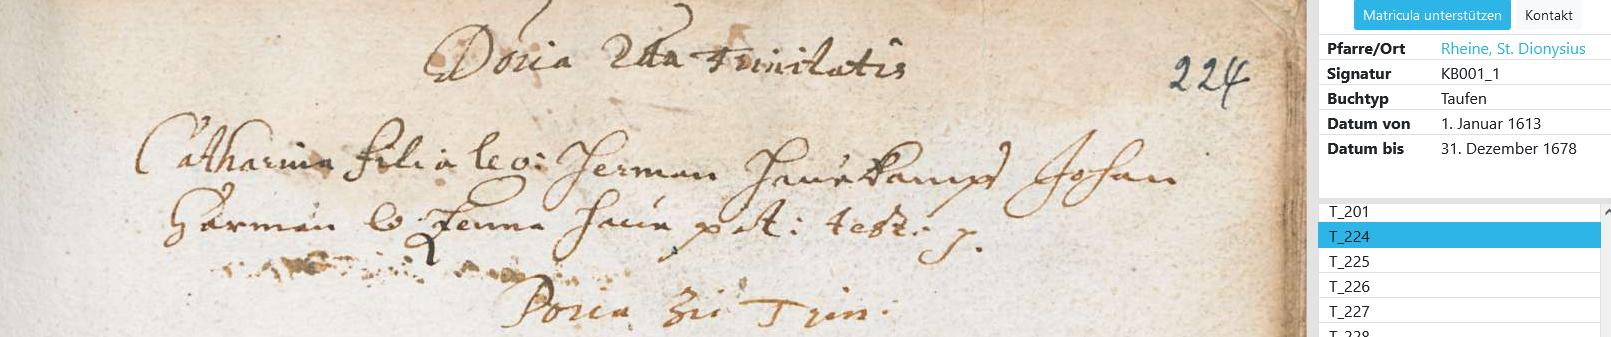 Doīca 2da Trinitatis
224
Catharina filia leg: Herman Hauekamps Johan
Harman & Fenna Haue pat: test:
Doīca 3tia Trin:
Matricula unterstützen Kontakt
Pfarre/Ort Rheine, St. Dionysius
Signatur KB001_1
Buchtyp Taufen
Datum von 1. Januar 1613
Datum bis 31. Dezember 1678
T_201
T_224
T_225
T_226
T_227
T_228